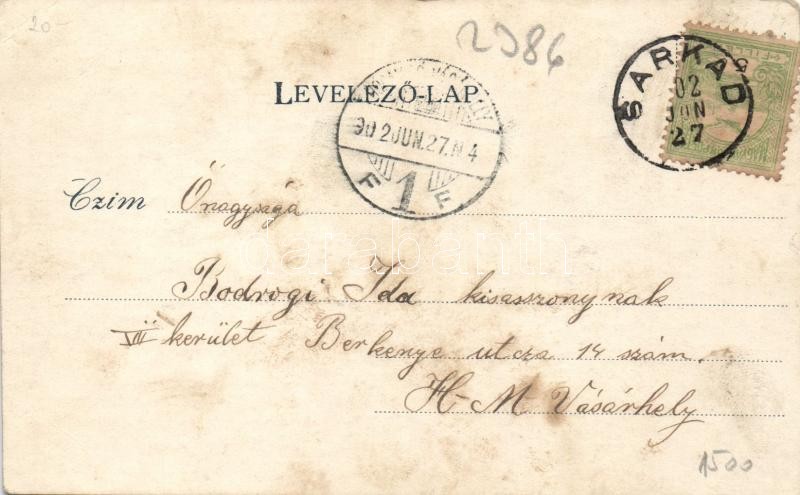 20-
2986
LEVELEZŐ-LAP
SARKAD
902
JUN
27
902 JUN. 27. N 4
F 1 F
Czim Önagysága
Bodrogi Ida kisasszonynak
VII kerület Berkenye utcza 14 szám.
H-M Vásárhely
1500